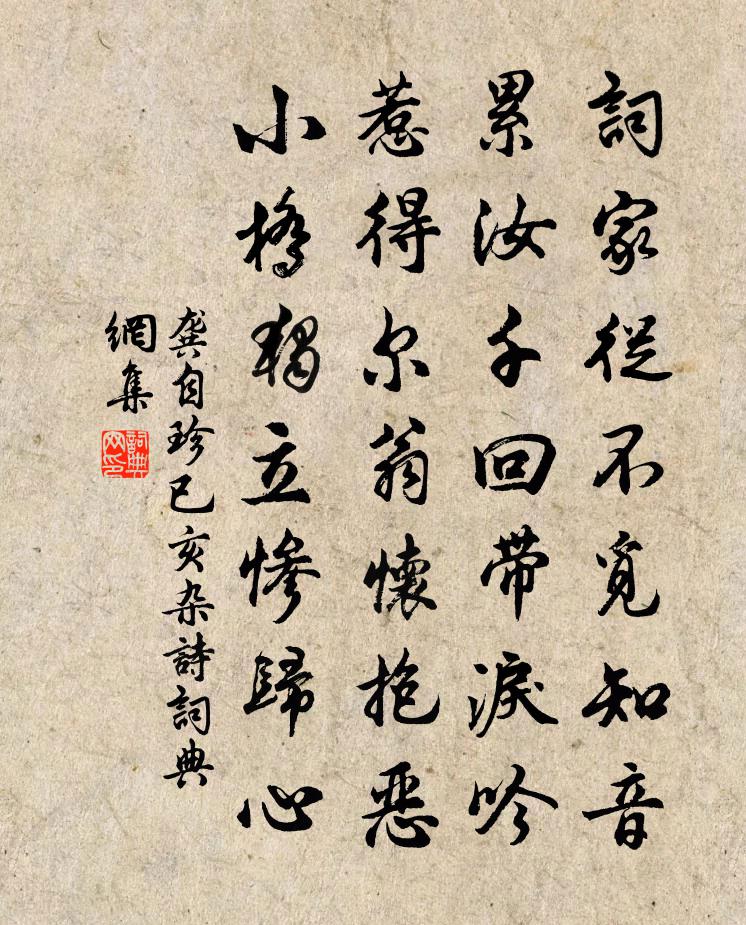 詞家從不覓知音
累汝千回帶淚吟
惹得尔翁懷抱惡
小橋獨立慘歸心
龔自珍已亥杂詩詞典
網集
詞典
网印